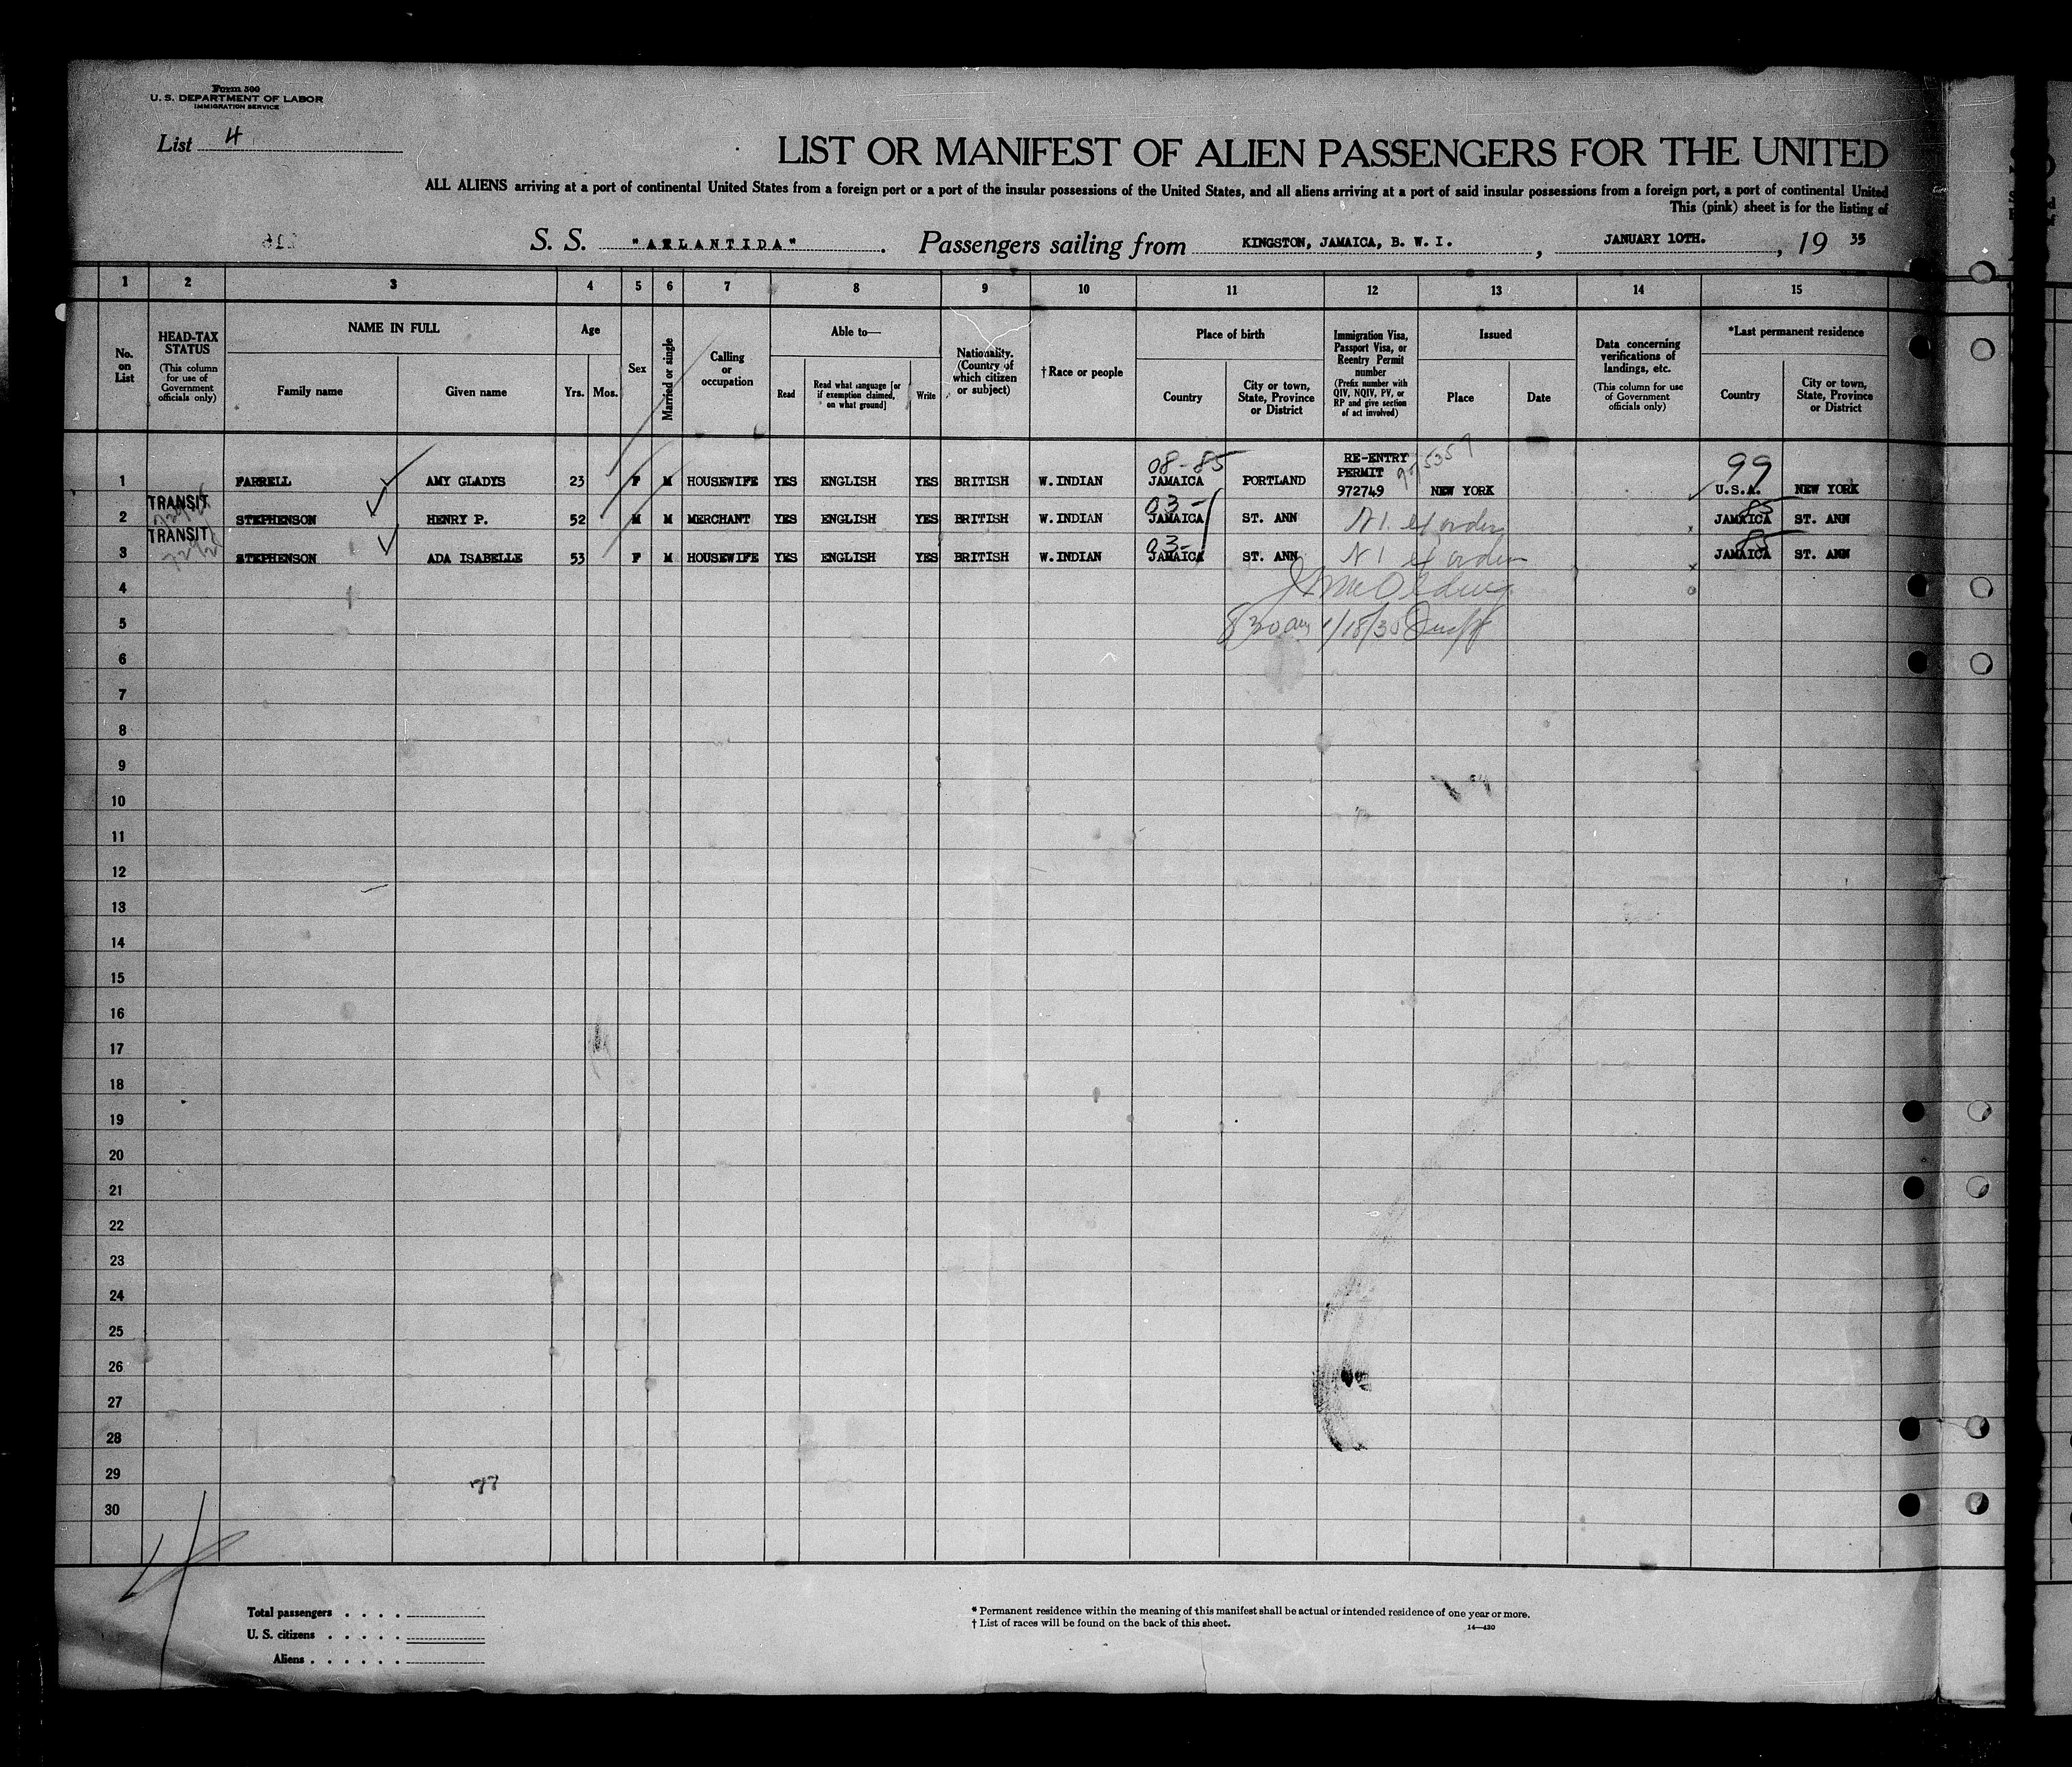 Form 500
U. S. DEPARTMENT OF LABOR
IMMIGRATION SERVICE
List 4
LIST OR MANIFEST OF ALIEN PASSENGERS FOR THE UNITED
ALL ALIENS arriving at a port of continental United States from a foreign port or a port of the insular possessions of the United States, and all aliens arriving at a port of said insular possessions from a foreign port, a port of continental United
This (pink) sheet is for the listing of
S. S. "ATLANTIDA". Passengers sailing from KINGSTON, JAMAICA, B. W. I., JANUARY 10TH., 19 35
1 2 3 4 5 6 7 8 9 10 11 12 13 14 15
No. on List
HEAD-TAX STATUS
(This column for use of Government officials only)
NAME IN FULL
Family name
Given name
Age
Yrs.
Mos.
Sex
Married or single
Calling or occupation
Able to—
Read
Read what language [or if exemption claimed, on what ground]
Write
Nationality. (Country of which citizen or subject)
† Race or people
Place of birth
Country
City or town, State, Province or District
Immigration Visa, Passport Visa, or Reentry Permit number
(Prefix number with QIV, NQIV, PV, or RP and give section of act involved)
Issued
Place
Date
Data concerning verifications of landings, etc.
(This column for use of Government officials only)
*Last permanent residence
Country
City or town, State, Province or District
08-85 RE-ENTRY PERMIT 99
1 FARRELL AMY GLADYS 23 F M HOUSEWIFE YES ENGLISH YES BRITISH W. INDIAN JAMAICA PORTLAND 972749 NEW YORK U.S.A. NEW YORK
TRANSIT 03- 85
2 STEPHENSON HENRY P. 52 M M MERCHANT YES ENGLISH YES BRITISH W. INDIAN JAMAICA ST. ANN JAMAICA ST. ANN
TRANSIT 03- 85
3 STEPHENSON ADA ISABELLE 53 F M HOUSEWIFE YES ENGLISH YES BRITISH W. INDIAN JAMAICA ST. ANN JAMAICA ST. ANN
4
5
6
7
8
9
10
11
12
13
14
15
16
17
18
19
20
21
22
23
24
25
26
27
28
29
30
Total passengers
U. S. citizens
Aliens
* Permanent residence within the meaning of this manifest shall be actual or intended residence of one year or more.
† List of races will be found on the back of this sheet.
14—430